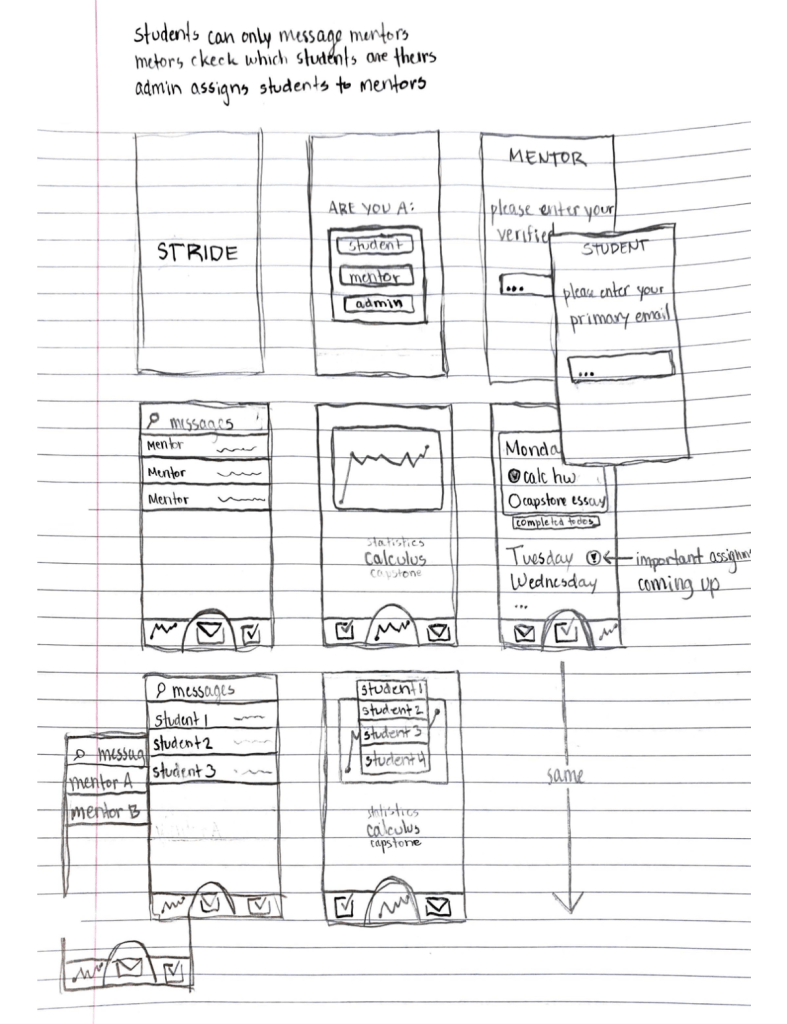 Students can only message mentors
metors ckeck which students are theirs
admin assigns students to mentors
STRIDE
ARE YOU A:
student
mentor
admin
MENTOR
please enter your
verified
...
STUDENT
please enter your
primary email
...
messages
Mentor
Mentor
Mentor
statistics
calculus
capstone
Monda
calc hw
capstone essay
completed todos
Tuesday
important assignm
Wednesday
coming up
...
messag
mentor A
mentor B
messages
student 1
student 2
student 3
student 1
student 2
student 3
student 4
statistics
calculus
capstone
same